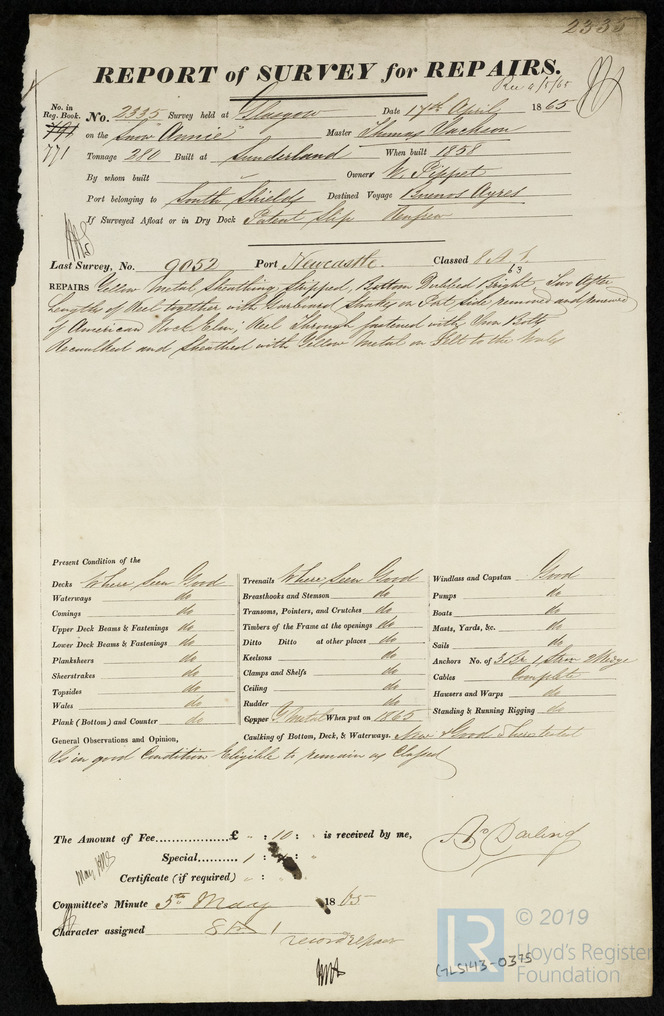 2335
REPORT of SURVEY for REPAIRS.
Rec 4/5/65
No. in Reg. Book.
791
771
No. 2335 Survey held at Glasgow Date 17th April 1865
on the Snow "Annie" Master Thomas Jackson
Tonnage 280 Built at Sunderland When built 1858
By whom built " Owners W. Pippet
Port belonging to South Shields Destined Voyage Buenos Ayres
If Surveyed Afloat or in Dry Dock Patent Slip Renfrew
Last Survey, No. 9052 Port Newcastle Classed 8 A 1
63
REPAIRS Yellow Metal Sheathing Stripped, Bottom Dubbed Bright, Two After
Lengths of Keel together with Garboard Strakes on Port side removed and renewed
of American Rock Elm; Keel Through fastened with Iron Bolts
Recaulked and Sheathed with Yellow Metal on Felt to the Wales
Present Condition of the
Decks Where Seen Good
Waterways do
Comings do
Upper Deck Beams & Fastenings do
Lower Deck Beams & Fastenings do
Planksheers do
Sheerstrakes do
Topsides do
Wales do
Plank (Bottom) and Counter do
Treenails Where Seen Good
Breasthooks and Stemson do
Transoms, Pointers, and Crutches do
Timbers of the Frame at the openings do
Ditto Ditto at other places do
Keelsons do
Clamps and Shelfs do
Ceiling do
Rudder do
Copper Y Metal When put on 1865
Windlass and Capstan Good
Pumps do
Boats do
Masts, Yards, &c. do
Sails do
Anchors No. of 3 Br 1 Strm 2 Kedge
Cables Complete
Hawsers and Warps do
Standing & Running Rigging do
General Observations and Opinion,
Caulking of Bottom, Deck, & Waterways. New & Good
Is in good Condition Eligible to remain as Classed
The Amount of Fee................£ " : 10 : " is received by me,
As Darling
Special.......... 1 :
Certificate (if required) " :
May
Committee's Minute 5th May 1865
Character assigned 8 A 1
record repair
GLS143-0375
LR
© 2019
Lloyd's Register
Foundation